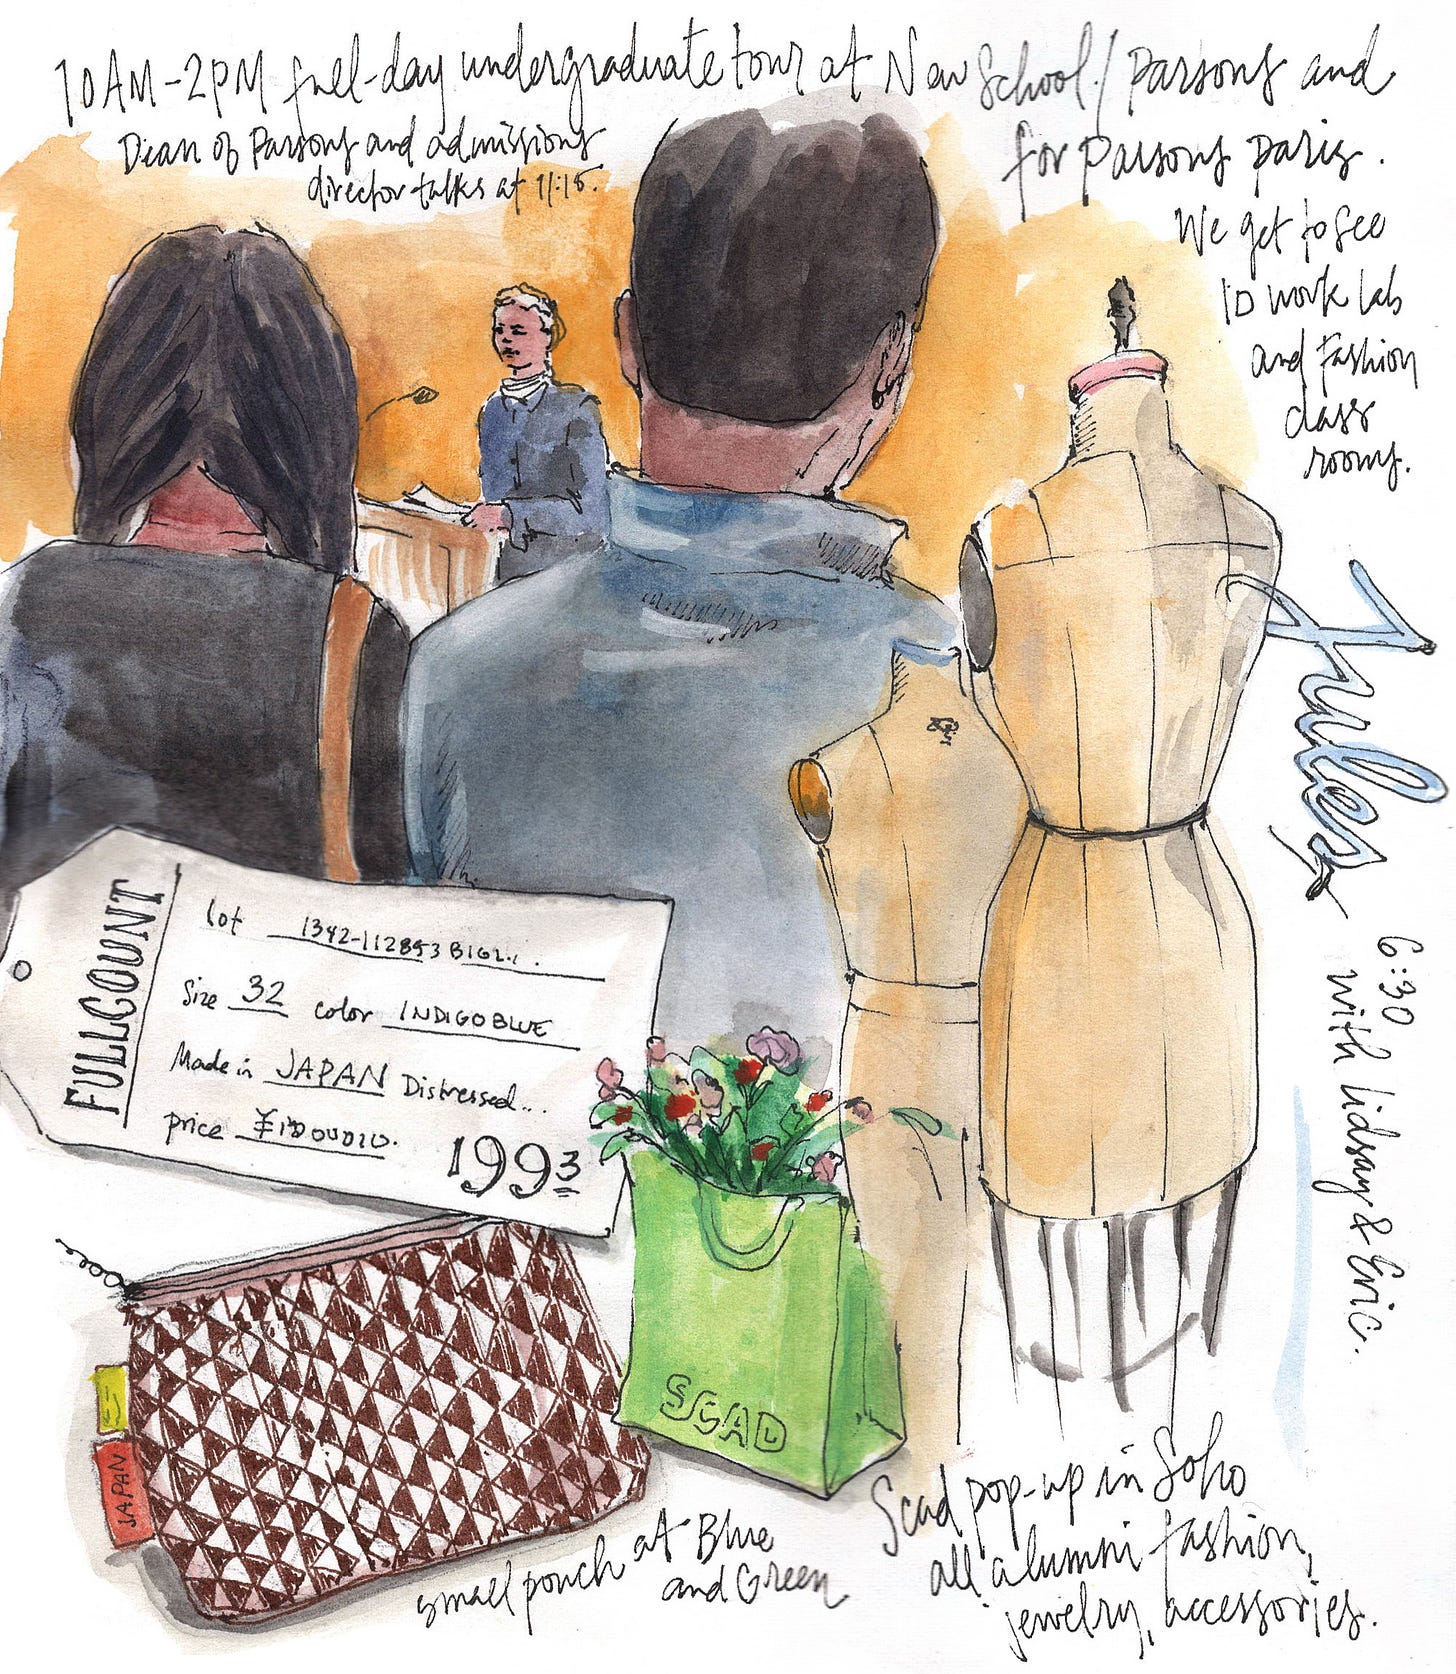 10AM-2PM full-day undergraduate tour at New School / Parsons and
for Parsons Paris.
Dean of Parsons and admissions
director talks at 11:15.
We get to see
ID work lab
and Fashion
class
rooms.
Jules
6:30
with Lidsay & Eric.
FULLCOUNT
Lot 1342-112853 BIGL...
Size 32 color INDIGO BLUE
Made in JAPAN Distressed...
price
1993
JAPAN
SCAD
small pouch at Blue
and Green
Scad pop-up in Soho
all alumni fashion,
jewelry, accessories.